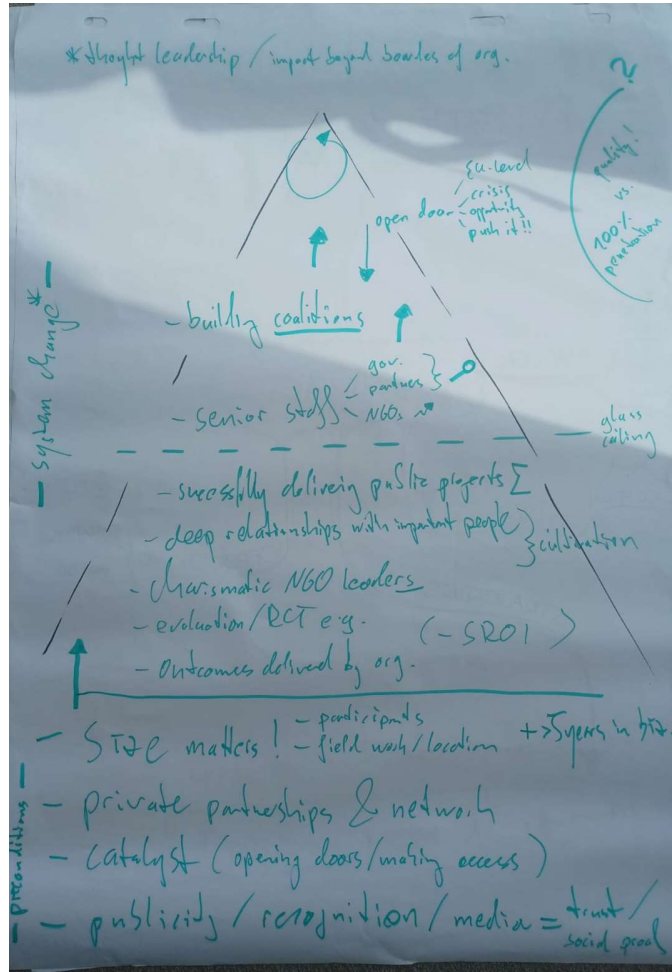 * thoght leadership / impact beyond boarders of org.
?
quality!
vs.
100%
penetration
open door
EU-level
crisis
opportunity
push it!!
- building coalitions
- senior staff
gov.
partners
NGOs
glass
ceiling
- system change* -
- sucessfully delivering public projects Σ
- deep relationships with important people
cultivation
- charismatic NGO leaders
- evaluation/RCT e.g.
(- SROI )
- outcomes delivered by org.
- Size matters!
- participants
- field work/location
+ >5 years in biz.
- private partnerships & network
- catalyst (opening doors/making access)
- publicity / recognition / media = trust /
social proof
- preconditions -